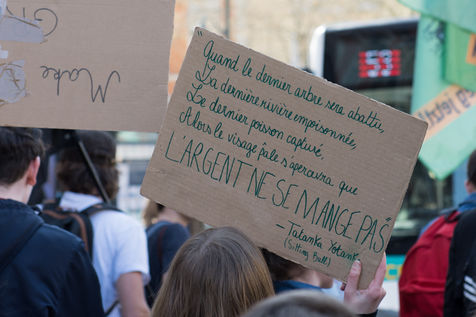 Make
"Quand le dernier arbre sera abattu,
La dernière rivière empoisonnée,
Le dernier poisson capturé,
Alors le visage pâle s'apercevra que
L'ARGENT NE SE MANGE PAS"
- Tatanka Yotanka
(Sitting Bull)
53